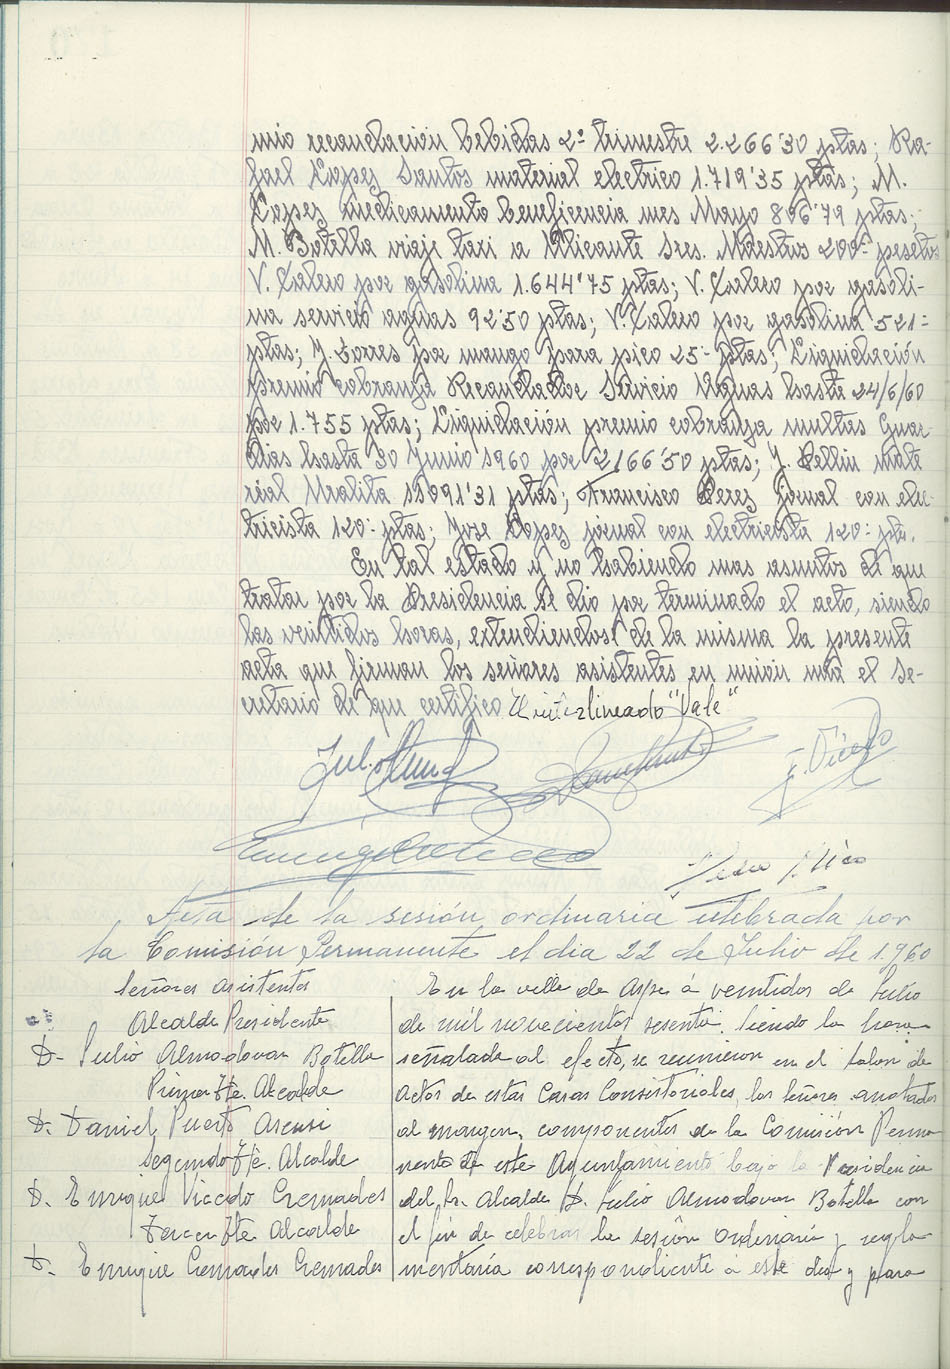 mio recaudación bebidas 2º trimestre 2.266'30 ptas; Ra-
fael Lopez Santos material electrico 1.719'35 ptas; M.
Lopez medicamento beneficencia mes Mayo 896'79 ptas;
M. Botella viaje taxi a Alicante Sres. Maestros 200- pesetas
V. Calero por gasolina 1.644'75 ptas; V. Calero por gasoli-
na servicio aguas 92'50 ptas; V. Calero por gasolina 521-
ptas; J. Torres por mango para pico 25- ptas; Liquidación
premio cobranza Recaudador Servicio Aguas hasta 24/6/60
por 1.755 ptas; Liquidación premio cobranza multas Guar-
dias hasta 30 Junio 1960 por 2166'50 ptas; J. Bellin mate
rial Uralita 11091'31 ptas; Francisco Perez jornal con elec-
tricista 120- ptas; Jose Lopez jornal con electricista 120- pts.
En tal estado y no habiendo mas asuntos de que
tratar por la Presidencia se dio por terminado el acto, siendo
las veintidos horas, extendiendose de la misma la presente
acta que firman los señores asistentes en union mia el Se-
cretario de que certifico. El interlineado "Vale"
J. Vicedo
Acta de la sesión ordinaria celebrada por
la Comisión Permanente el dia 22 de Julio de 1.960
Señores asistentes
Alcalde Presidente
D. Julio Almodovar Botella
Primer Tte. Alcalde
D. Daniel Puerto Asensi
Segundo Tte. Alcalde
D. Enrique Vicedo Cremades
Tercer Tte Alcalde
D. Enrique Cremades Cremades
En la villa de Aspe á veintidos de Julio
de mil novecientos sesenta. Siendo la hora
señalada al efecto, se reunieron en el Salon de
Actos de estas Casas Consistoriales, los señores anotados
al margen, componentes de la Comisión Perma
nente de este Ayuntamiento bajo la Presidencia
del Sr. Alcalde D. Julio Almodovar Botella con
el fin de celebrar la sesión ordinaria y regla
mentaria correspondiente a este dia y para